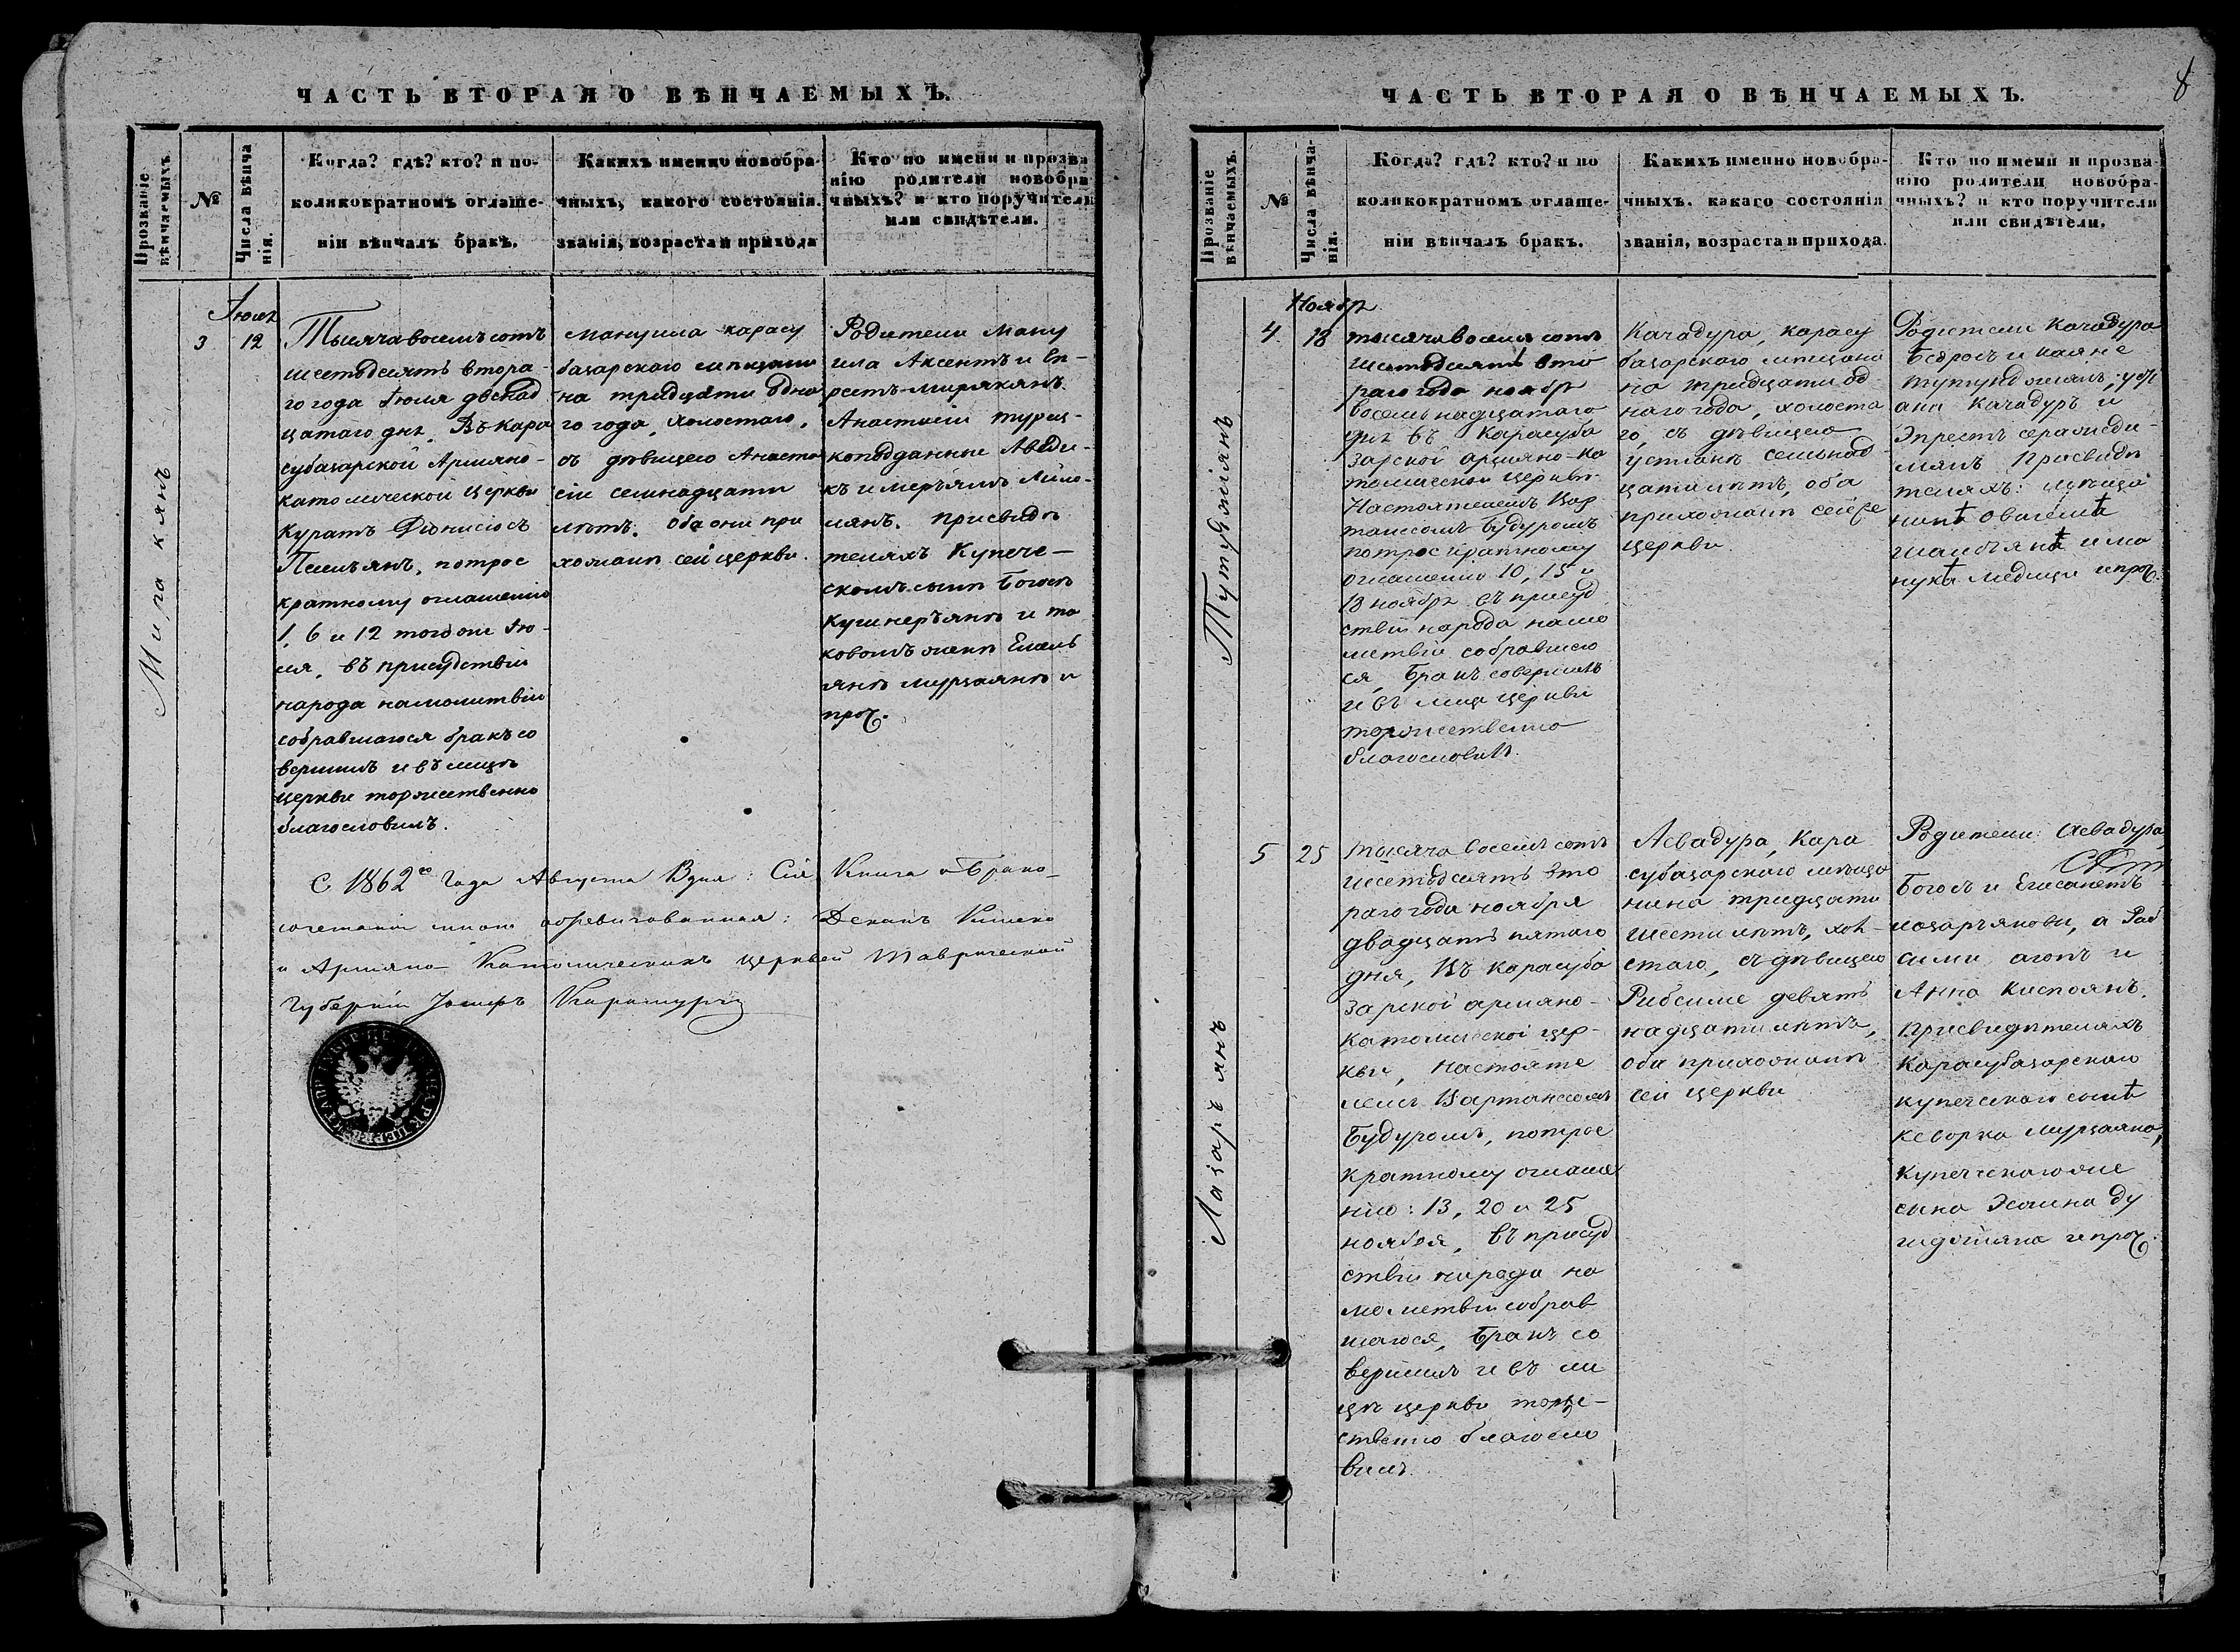 ЧАСТЬ ВТОРАЯ О ВѢНЧАЕМЫХЪ.
Прозваніе вѣнчаемыхъ.
№
Числа вѣнчанія.
Когда? гдѣ? кто? и по-
коликократномъ оглаше-
ніи вѣнчалъ бракъ.
Какихъ именно новобра-
чныхъ, какого состоянія.
званія, возраста и прихода
Кто по имени и прозва
нію родители новобра
чныхъ? и кто поручители
или свидѣтели.
Июля
3
12
Тысяча восемъ сотъ
шестьдесятъ втора-
го года Іюля двенад
цатаго дня. Въ Кара
субазарской Армяно-
католической Церкви
Куратъ Діонисіосъ
потрое
кратному оглашенію
1, 6 и 12 того же Ію-
ля, въ присудствіи
народа на молитвіи
собравшагося бракъ со
вершилъ и въ лицѣ
церкви торжественно
благословилъ.
Манушла карасу
базарского мещани
на тридцати одна
го года, холостаго,
съ дѣвицею Анаста
сіи семнадцати
лѣтъ. Оба они при
хожанъ сей церкви.
Родители Ману
ила Аксентъ и Еп-
ретъ
Анастасіи турец-
коподданные Аведи-
къ и Меръямъ
лянъ. При свидѣ
теляхъ Купече-
скомъ сынѣ Богосѣ
Кушнеръянѣ и та
ковомъ женѣ
янѣ Мурзаянѣ и
проч.
С 1862го Года Августа дня: Сія Книга о Брако-
сочетаніи мною обревизованная: Деканъ
и Армяно-Католическихъ церквей Таврической
Губерніи
ЧАСТЬ ВТОРАЯ О ВѢНЧАЕМЫХЪ.
8
Прозваніе вѣнчаемыхъ.
№
Числа вѣнча-нія.
Когда? гдѣ? кто? и по
коликократномъ оглаше-
ніи вѣнчалъ бракъ.
Какихъ именно новобра-
чныхъ. какаго состоянія
званія, возраста и прихода.
Кто по имени и прозва-
нію родители новобра-
чныхъ? и кто поручители
или свидѣтели.
Тутунжіянъ
Ноябр.
4
18
тысяча восемъ сотъ
шестьдесятъ вто
раго года ноября
восемьнадцатаго
дня въ Карасуба
зарской армяно-ка
толической церкви
Настоятелемъ Вар
танесомъ Будуромъ
потроекратному
оглашенію 10, 15 и
18 ноября въ присуд
ствіи народа на мо
литвіи собравшаго
ся, Бракъ совершилъ
и въ лицѣ церкви
торжественно
благословилъ.
Качадура, карасу
базарскаго мещани
на тридцати од
наго года, холоста
го, съ дѣвицею
семьнад
цати лѣтъ, оба
прихожанѣ сей
церкви.
Родители Качадура
Бедросъ и
Тутунджіянъ,
Качадуръ и
При свидѣ
теляхъ: мѣща
и ма
нука и проч.
Лазаръянъ
5
25
тысяча восемъ сотъ
шестьдесятъ вто
раго года ноября
двадцать пятаго
дня, Въ Карасуба
зарской армяно-
католической цер-
кви, Настояте
лемъ Вартанесомъ
Будуромъ, потрое
кратному оглаше
нію: 13, 20 и 25
ноября, въ присуд
ствіи народа на
молитвіи собрав
шагося, Бракъ со
вершилъ и въ ли
цѣ церкви торже-
ственно благосло
вилъ.
Асвадура, Кара
субазарскаго мѣща
нина тридцати
шести лѣтъ, хол-
стаго, съ дѣвицею
Рибсиме девять
надцати лѣтъ,
оба прихожанѣ
сей церкви
Родители: Асвадура,
Богосъ и Егисапетъ
лозаръянови, а Риб
сими, агопъ и
Анна Киспоянъ.
при свидѣтеляхъ
Карасубазарскаго
купеческаго сынѣ
Кеворка Мурзаяна,
купеческаго же
сына
и проч.